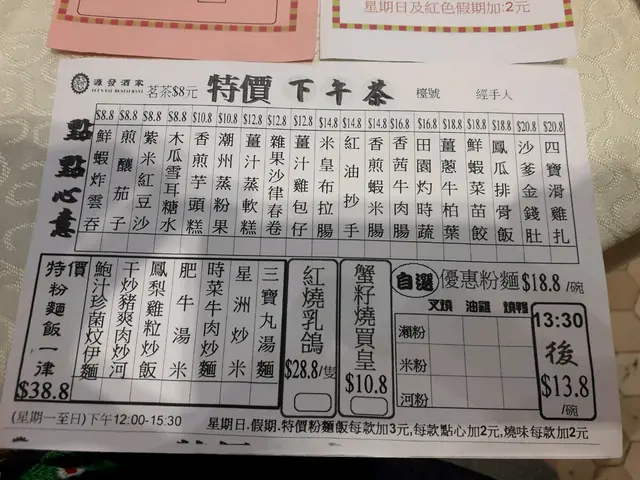 星期日及紅色假期加:2元
源發酒家
茗茶$8元
特價下午茶
檯號
經手人
點點心意
$8.8 鮮蝦炸雲吞
$8.8 煎釀茄子
$8.8 紫米紅豆沙
$8.8 木瓜雪耳糖水
$10.8 香煎芋頭糕
$10.8 潮州蒸粉果
$12.8 薑汁蒸軟糕
$12.8 雜果沙律春卷
$12.8 薑汁雞包仔
$14.8 米皇布拉腸
$14.8 紅油抄手
$14.8 香煎蝦米腸
$16.8 香茜牛肉腸
$16.8 田園灼時蔬
$18.8 薑蔥牛柏葉
$18.8 鮮蝦菜苗餃
$18.8 鳳瓜排骨飯
$20.8 沙爹金錢肚
$20.8 四寶滑雞扎
特價粉麵飯一律
$38.8
鮑汁珍菌炆伊麵
干炒豬爽肉炒河
鳳梨雞粒炒飯
肥牛湯米
時菜牛肉炒麵
星洲炒米
三寶丸湯麵
紅燒乳鴿
$28.8/隻
蟹籽燒買皇
$10.8
自選 優惠粉麵$18.8/碗
叉燒 油雞 燒鴨
瀨粉
米粉
河粉
13:30
後
$13.8
/碗
(星期一至日)下午12:00-15:30
星期日.假期.特價粉麵飯每款加3元,每款點心加2元,燒味每款加2元